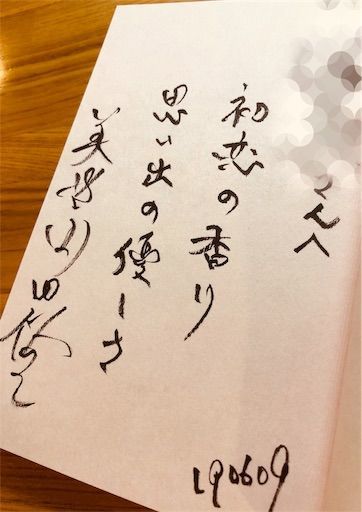 さんへ
初恋の香り
思い出の優しさ
190609